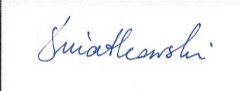 Świątkowski